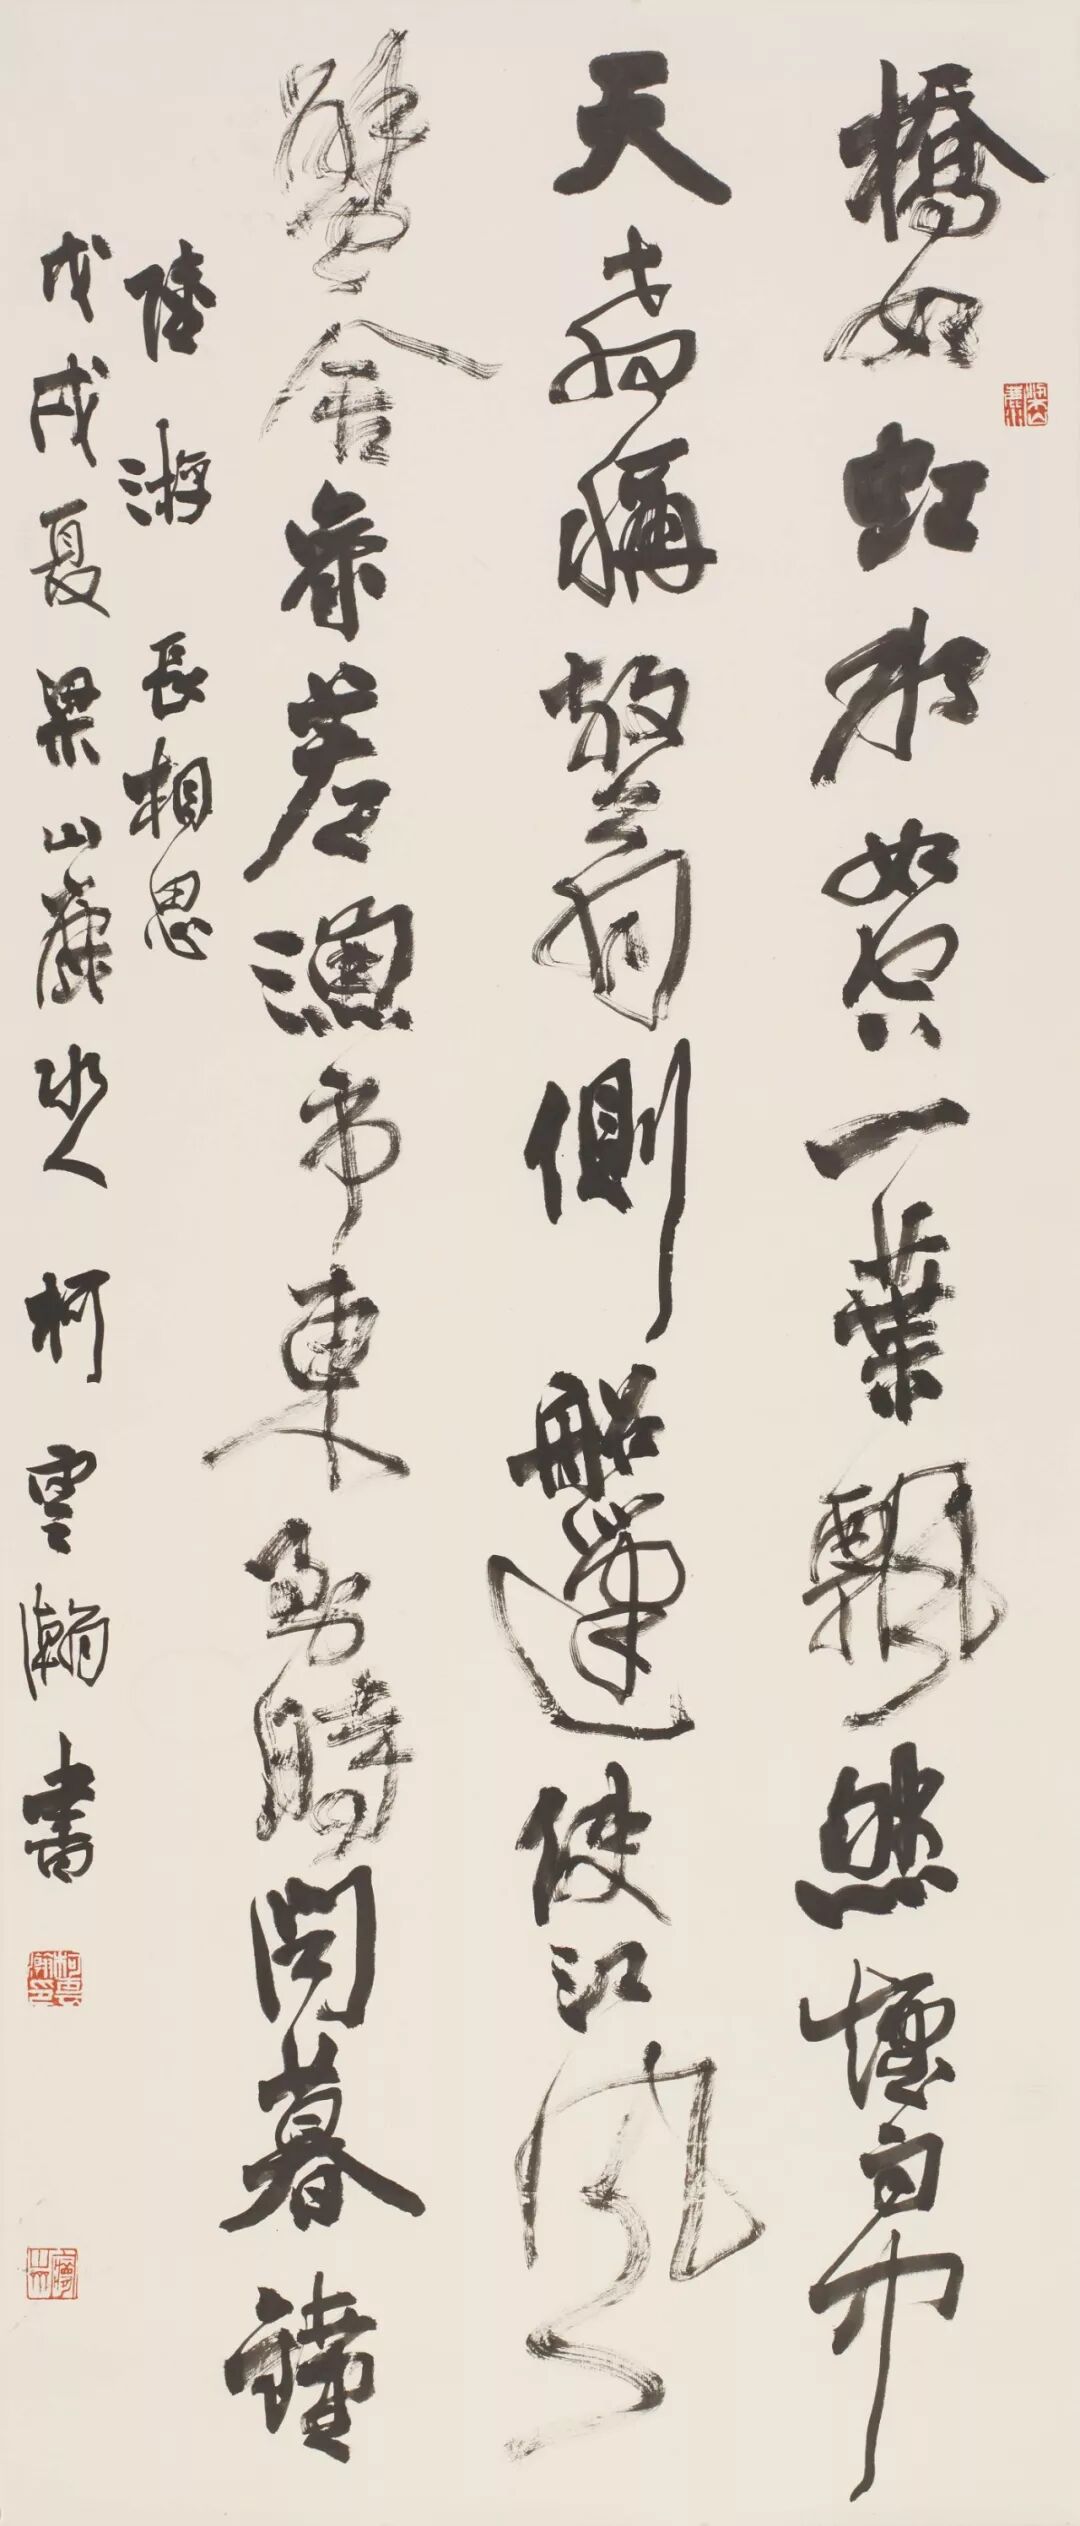 橋如虹水如空一葉飄然煙雨中
天教稱放翁側船篷使江風
蟹舍參差漁市東到時聞暮鐘
陸游 長相思
戊戌夏梁山麓水人柯雲瀚書
柯雲瀚印